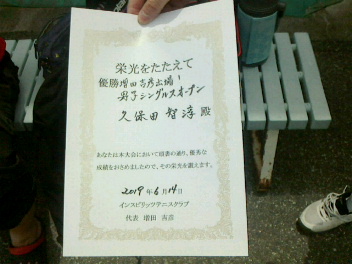 栄光をたたえて
優勝 増田吉彦出場!
男子シングルスオープン
久保田 智淳 殿
あなたは本大会において頭書の通り、優秀な
成績をおさめましたので、その栄光を讃えます。
2019年 6月 14日
インスピリッツテニスクラブ
代表 増田 吉彦